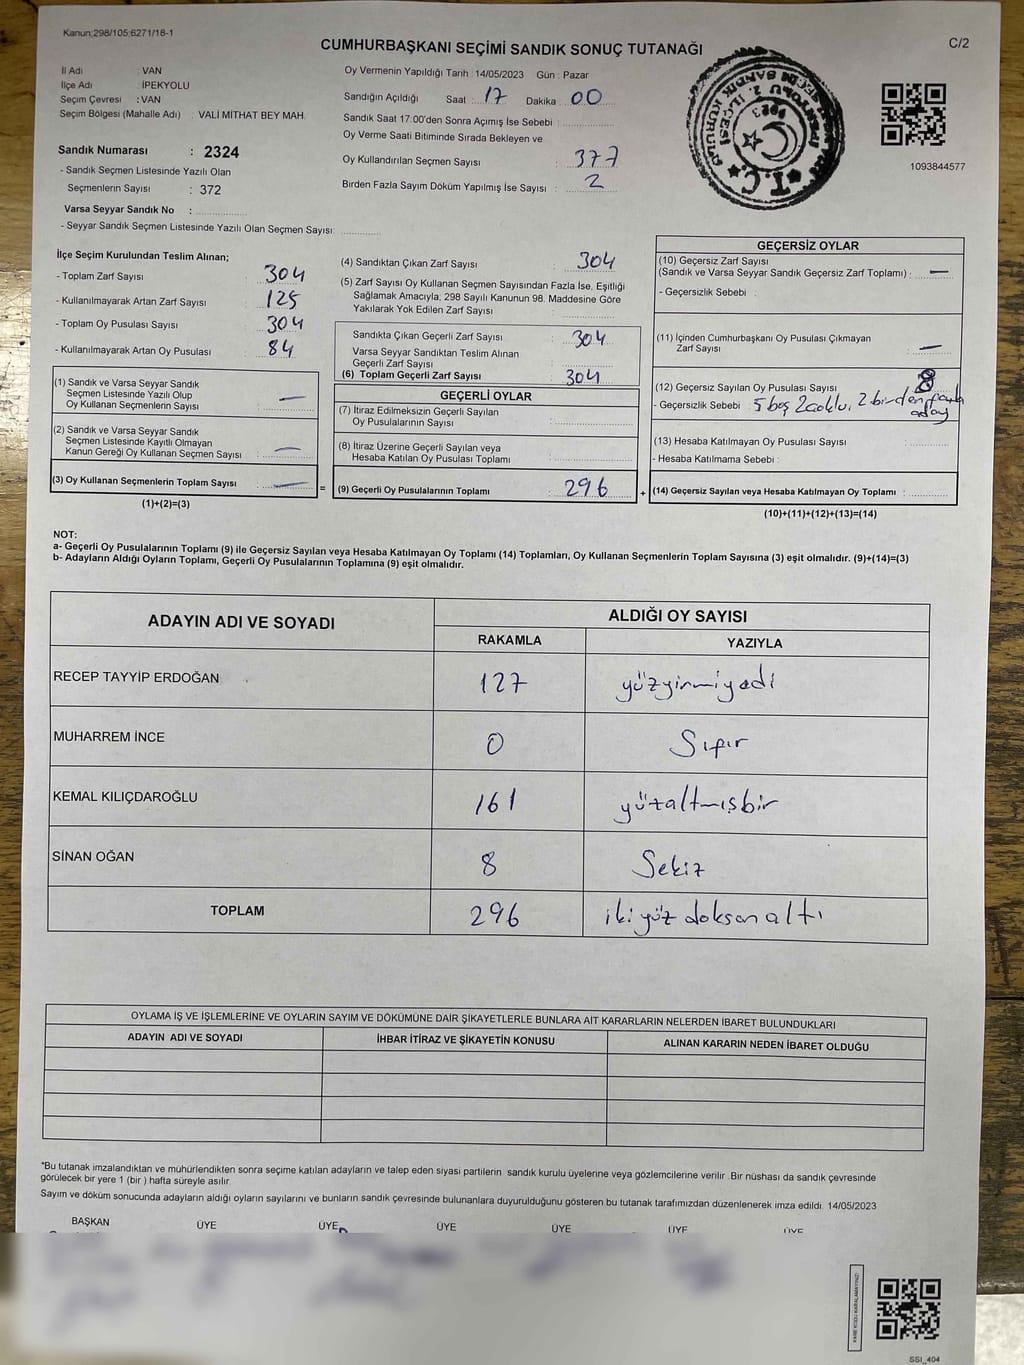 Kanun;298/105;6271/18-1
CUMHURBAŞKANI SEÇİMİ SANDIK SONUÇ TUTANAĞI
C/2
İl Adı : VAN
İlçe Adı : İPEKYOLU
Seçim Çevresi : VAN
Seçim Bölgesi (Mahalle Adı) : VALİ MİTHAT BEY MAH.
Sandık Numarası : 2324
- Sandık Seçmen Listesinde Yazılı Olan
Seçmenlerin Sayısı : 372
Varsa Seyyar Sandık No :
- Seyyar Sandık Seçmen Listesinde Yazılı Olan Seçmen Sayısı:
Oy Vermenin Yapıldığı Tarih : 14/05/2023 Gün : Pazar
Sandığın Açıldığı Saat : 17 Dakika 00
Sandık Saat 17:00'den Sonra Açımış İse Sebebi :
Oy Verme Saati Bitiminde Sırada Bekleyen ve
Oy Kullandırılan Seçmen Sayısı : 377
Birden Fazla Sayım Döküm Yapılmış İse Sayısı : 2
T.C.
1093844577
İlçe Seçim Kurulundan Teslim Alınan;
- Toplam Zarf Sayısı : 304
- Kullanılmayarak Artan Zarf Sayısı : 125
- Toplam Oy Pusulası Sayısı : 304
- Kullanılmayarak Artan Oy Pusulası : 84
(1) Sandık ve Varsa Seyyar Sandık
Seçmen Listesinde Yazılı Olup
Oy Kullanan Seçmenlerin Sayısı : —
(2) Sandık ve Varsa Seyyar Sandık
Seçmen Listesinde Kayıtlı Olmayan
Kanun Gereği Oy Kullanan Seçmen Sayısı : —
(3) Oy Kullanan Seçmenlerin Toplam Sayısı : —
(1)+(2)=(3)
(4) Sandıktan Çıkan Zarf Sayısı : 304
(5) Zarf Sayısı Oy Kullanan Seçmen Sayısından Fazla İse, Eşitliği
Sağlamak Amacıyla; 298 Sayılı Kanunun 98. Maddesine Göre
Yakılarak Yok Edilen Zarf Sayısı :
Sandıkta Çıkan Geçerli Zarf Sayısı : 304
Varsa Seyyar Sandıktan Teslim Alınan
Geçerli Zarf Sayısı :
(6) Toplam Geçerli Zarf Sayısı : 304
GEÇERLİ OYLAR
(7) İtiraz Edilmeksizin Geçerli Sayılan
Oy Pusulalarının Sayısı :
(8) İtiraz Üzerine Geçerli Sayılan veya
Hesaba Katılan Oy Pusulası Toplamı :
= (9) Geçerli Oy Pusulalarının Toplamı : 296
GEÇERSİZ OYLAR
(10) Geçersiz Zarf Sayısı
(Sandık ve Varsa Seyyar Sandık Geçersiz Zarf Toplamı) : —
- Geçersizlik Sebebi :
(11) İçinden Cumhurbaşkanı Oy Pusulası Çıkmayan
Zarf Sayısı : —
(12) Geçersiz Sayılan Oy Pusulası Sayısı : 8
- Geçersizlik Sebebi 5 boş 2 aoklu, 2 birden fazla
aday
(13) Hesaba Katılmayan Oy Pusulası Sayısı :
- Hesaba Katılmama Sebebi :
+ (14) Geçersiz Sayılan veya Hesaba Katılmayan Oy Toplamı :
(10)+(11)+(12)+(13)=(14)
NOT:
a- Geçerli Oy Pusulalarının Toplamı (9) ile Geçersiz Sayılan veya Hesaba Katılmayan Oy Toplamı (14) Toplamları, Oy Kullanan Seçmenlerin Toplam Sayısına (3) eşit olmalıdır. (9)+(14)=(3)
b- Adayların Aldığı Oyların Toplamı, Geçerli Oy Pusulalarının Toplamına (9) eşit olmalıdır.
ADAYIN ADI VE SOYADI ALDIĞI OY SAYISI
RAKAMLA YAZIYLA
RECEP TAYYİP ERDOĞAN 127 yüzyirmiyedi
MUHARREM İNCE 0 Sıfır
KEMAL KILIÇDAROĞLU 161 yüzaltmışbir
SİNAN OĞAN 8 Sekiz
TOPLAM 296 ikiyüz doksan altı
OYLAMA İŞ VE İŞLEMLERİNE VE OYLARIN SAYIM VE DÖKÜMÜNE DAİR ŞİKAYETLERLE BUNLARA AİT KARARLARIN NELERDEN İBARET BULUNDUKLARI
ADAYIN ADI VE SOYADI İHBAR İTİRAZ VE ŞİKAYETİN KONUSU ALINAN KARARIN NEDEN İBARET OLDUĞU
*Bu tutanak imzalandıktan ve mühürlendikten sonra seçime katılan adayların ve talep eden siyasi partilerin sandık kurulu üyelerine veya gözlemcilerine verilir. Bir nüshası da sandık çevresinde
görülecek bir yere 1 (bir ) hafta süreyle asılır.
Sayım ve döküm sonucunda adayların aldığı oyların sayılarını ve bunların sandık çevresinde bulunanlara duyurulduğunu gösteren bu tutanak tarafımızdan düzenlenerek imza edildi. 14/05/2023
BAŞKAN ÜYE ÜYE ÜYE ÜYE ÜYE ÜYE
KARE KODU KARALAMAYINIZ!
SSI_404